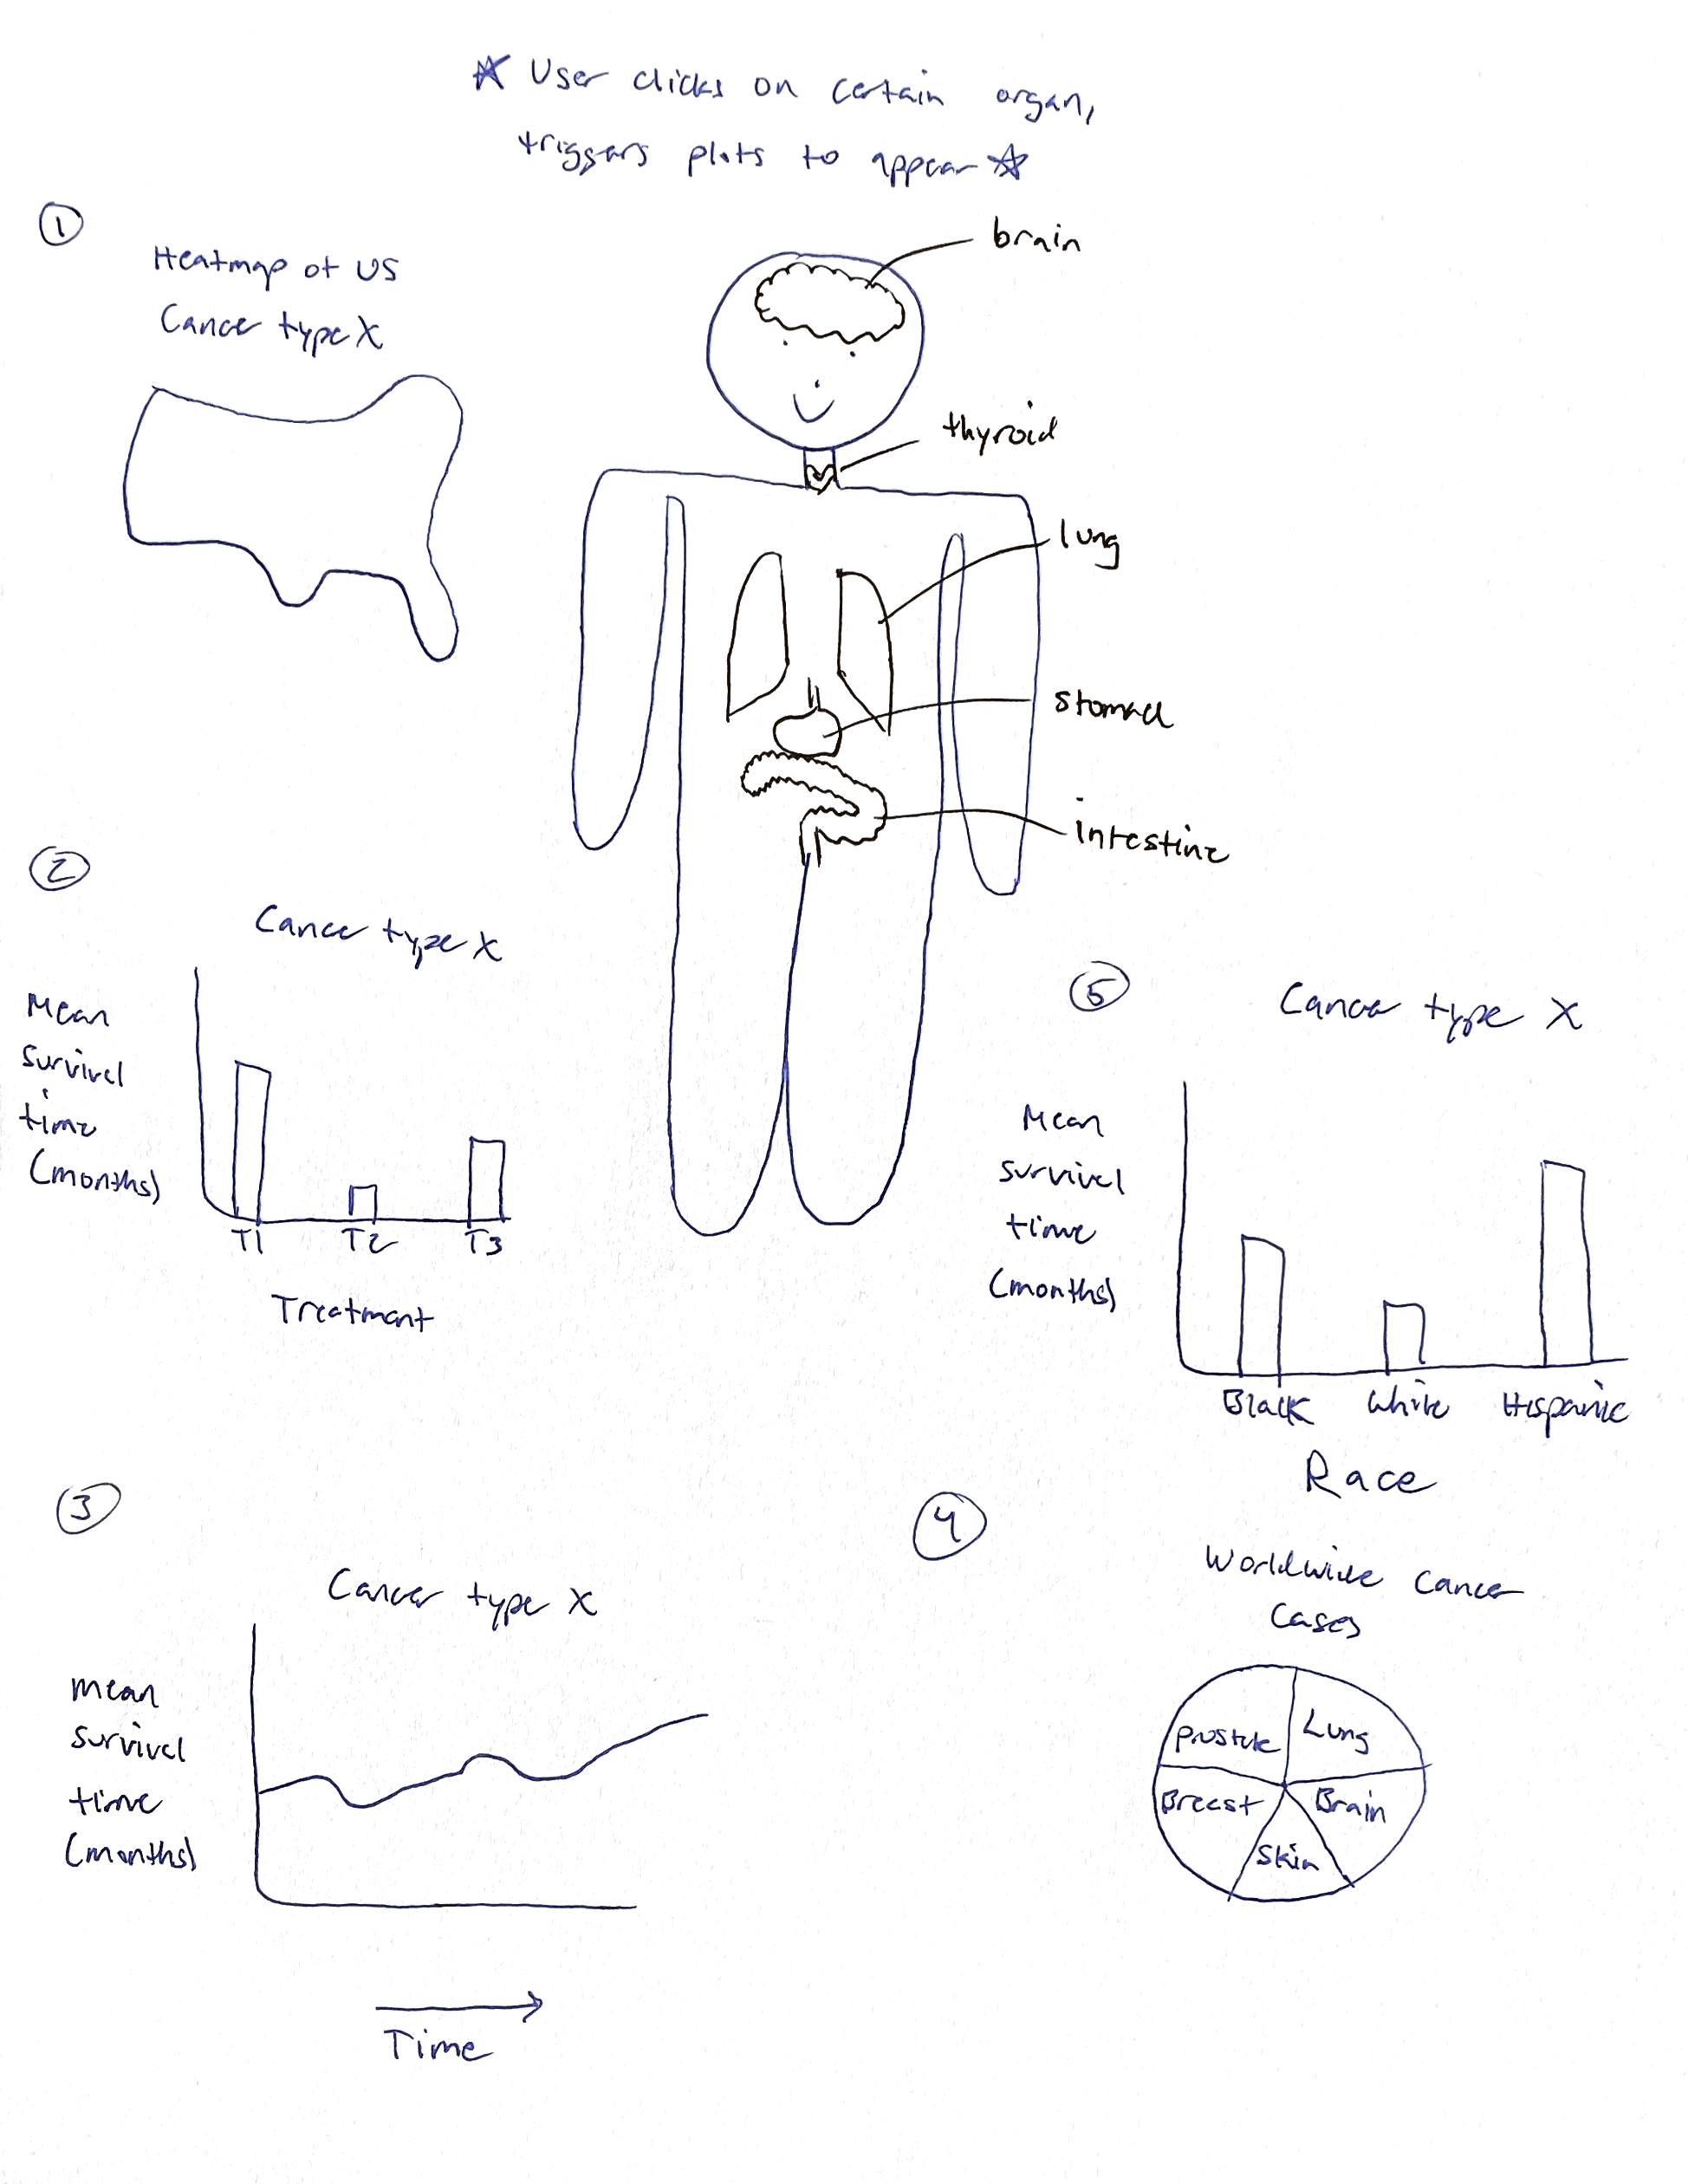 ☆ User clicks on certain organ,
triggers plots to appear ☆
1
Heatmap of US
Cancer type X
brain
thyroid
lung
stomach
intestine
2
Cancer type X
Mean
survival
time
(months)
T1 T2 T3
Treatment
5
Cancer type X
Mean
survival
time
(months)
Black White Hispanic
Race
3
Cancer type X
mean
survival
time
(months)
Time
4
Worldwide Cancer
Cases
Prostate Lung
Breast Brain
Skin